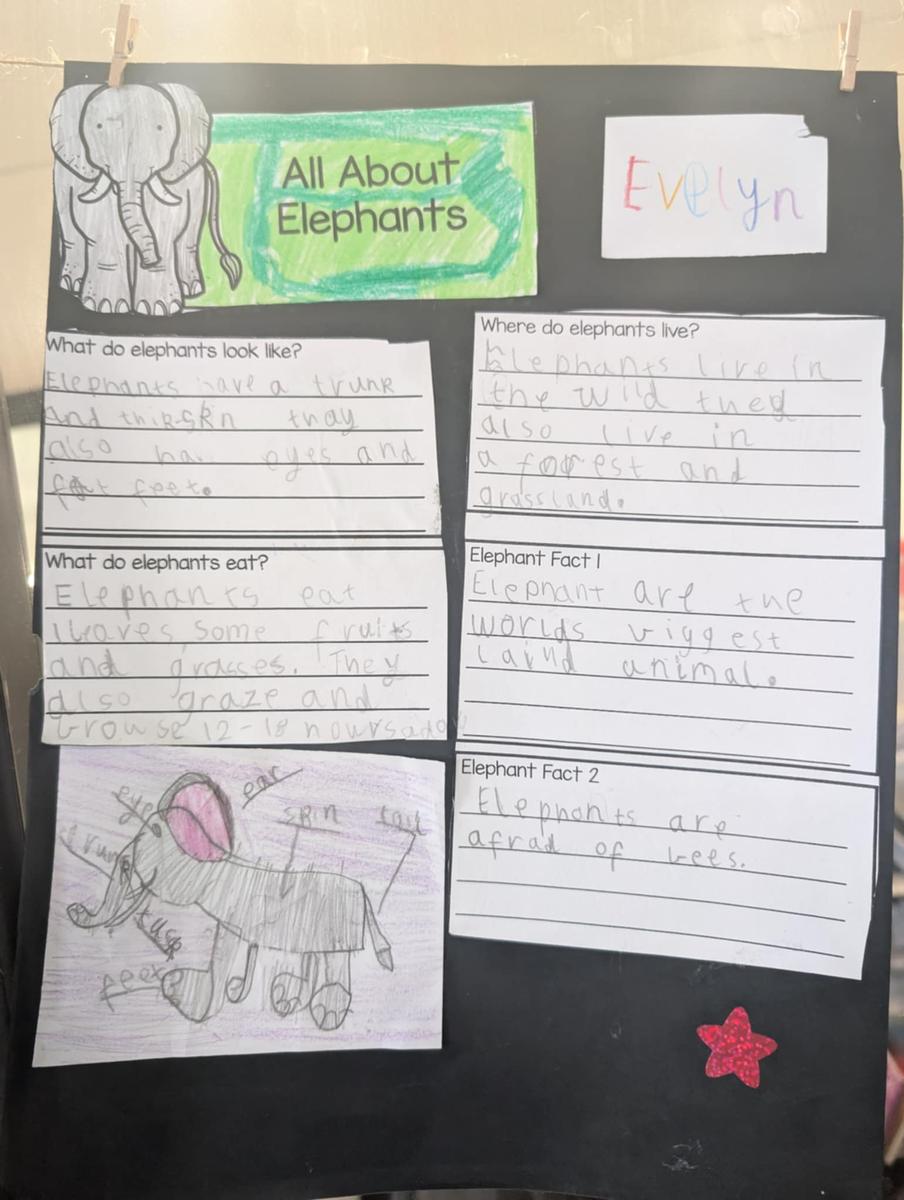 All About
Elephants
Evelyn
What do elephants look like?
Elephants have a trunk
and thik skn thay
also hav eyes and
fat feet.
Where do elephants live?
Elephants live in
the wild
also live in
a forest and
grassland.
What do elephants eat?
Elephants eat
leaves some fruits
and grasses. They
also graze and
browse 12-18 hours a day
Elephant Fact 1
Elephant are the
worlds biggest
laind animal.
Elephant Fact 2
Elephants are
afrad of bees.
ear
eye
skin
tail
trunk
tusk
feet